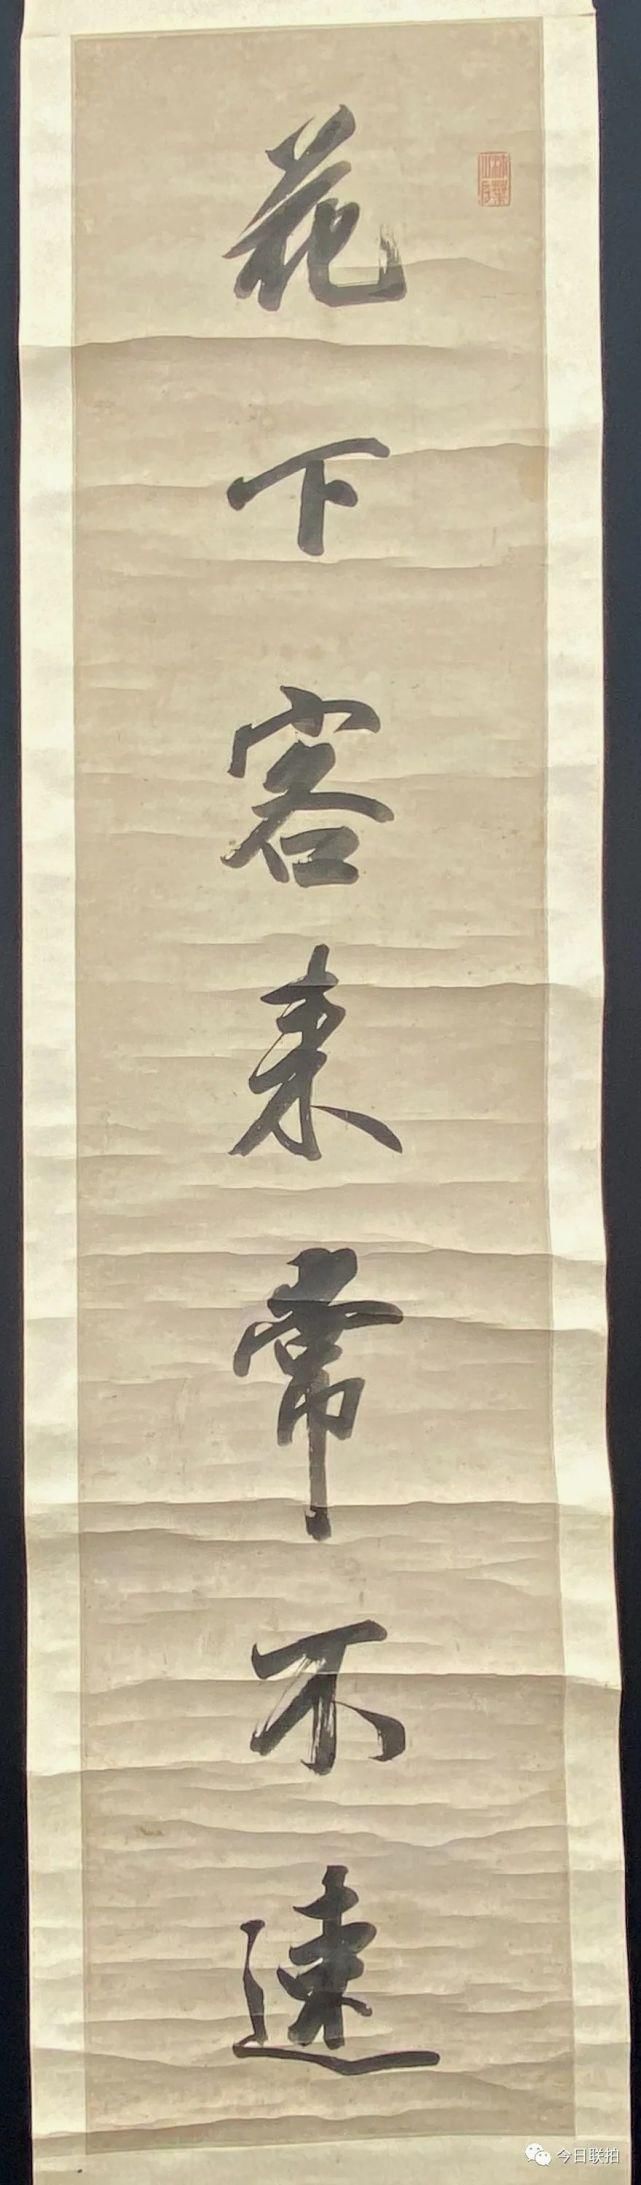 花下客来常不速
今日联拍